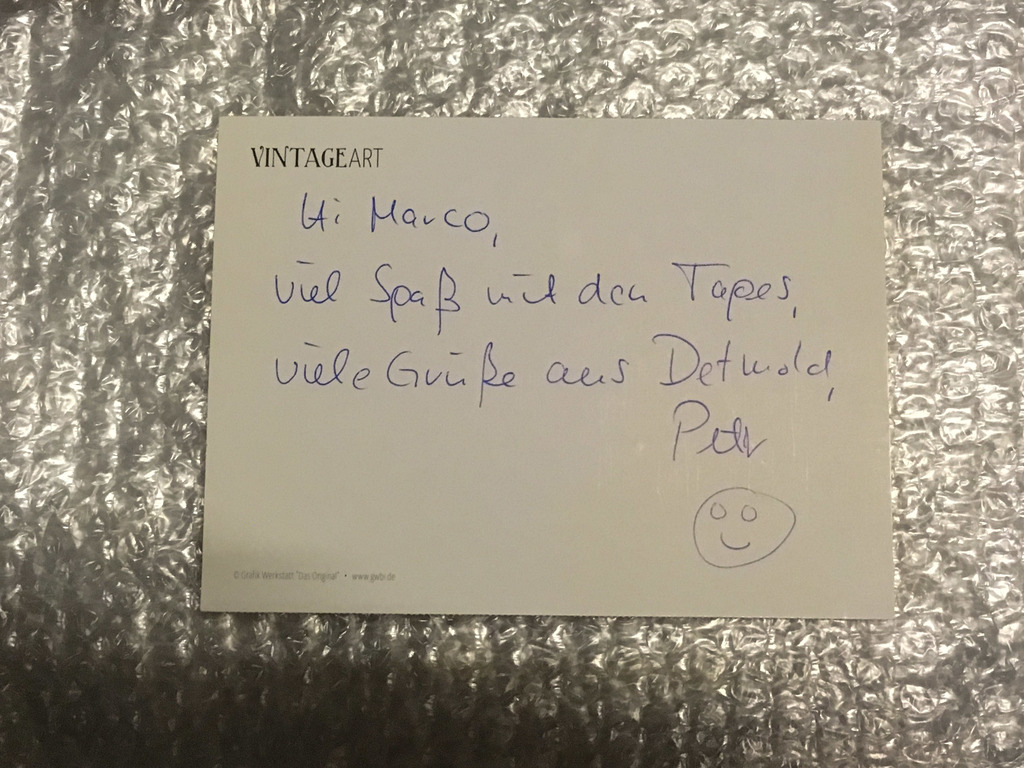 VINTAGEART
Hi Marco,
viel Spaß mit den Tapes,
viele Grüße aus Detmold,
Petr
© Grafik Werkstatt "Das Original" • www.gwbi.de